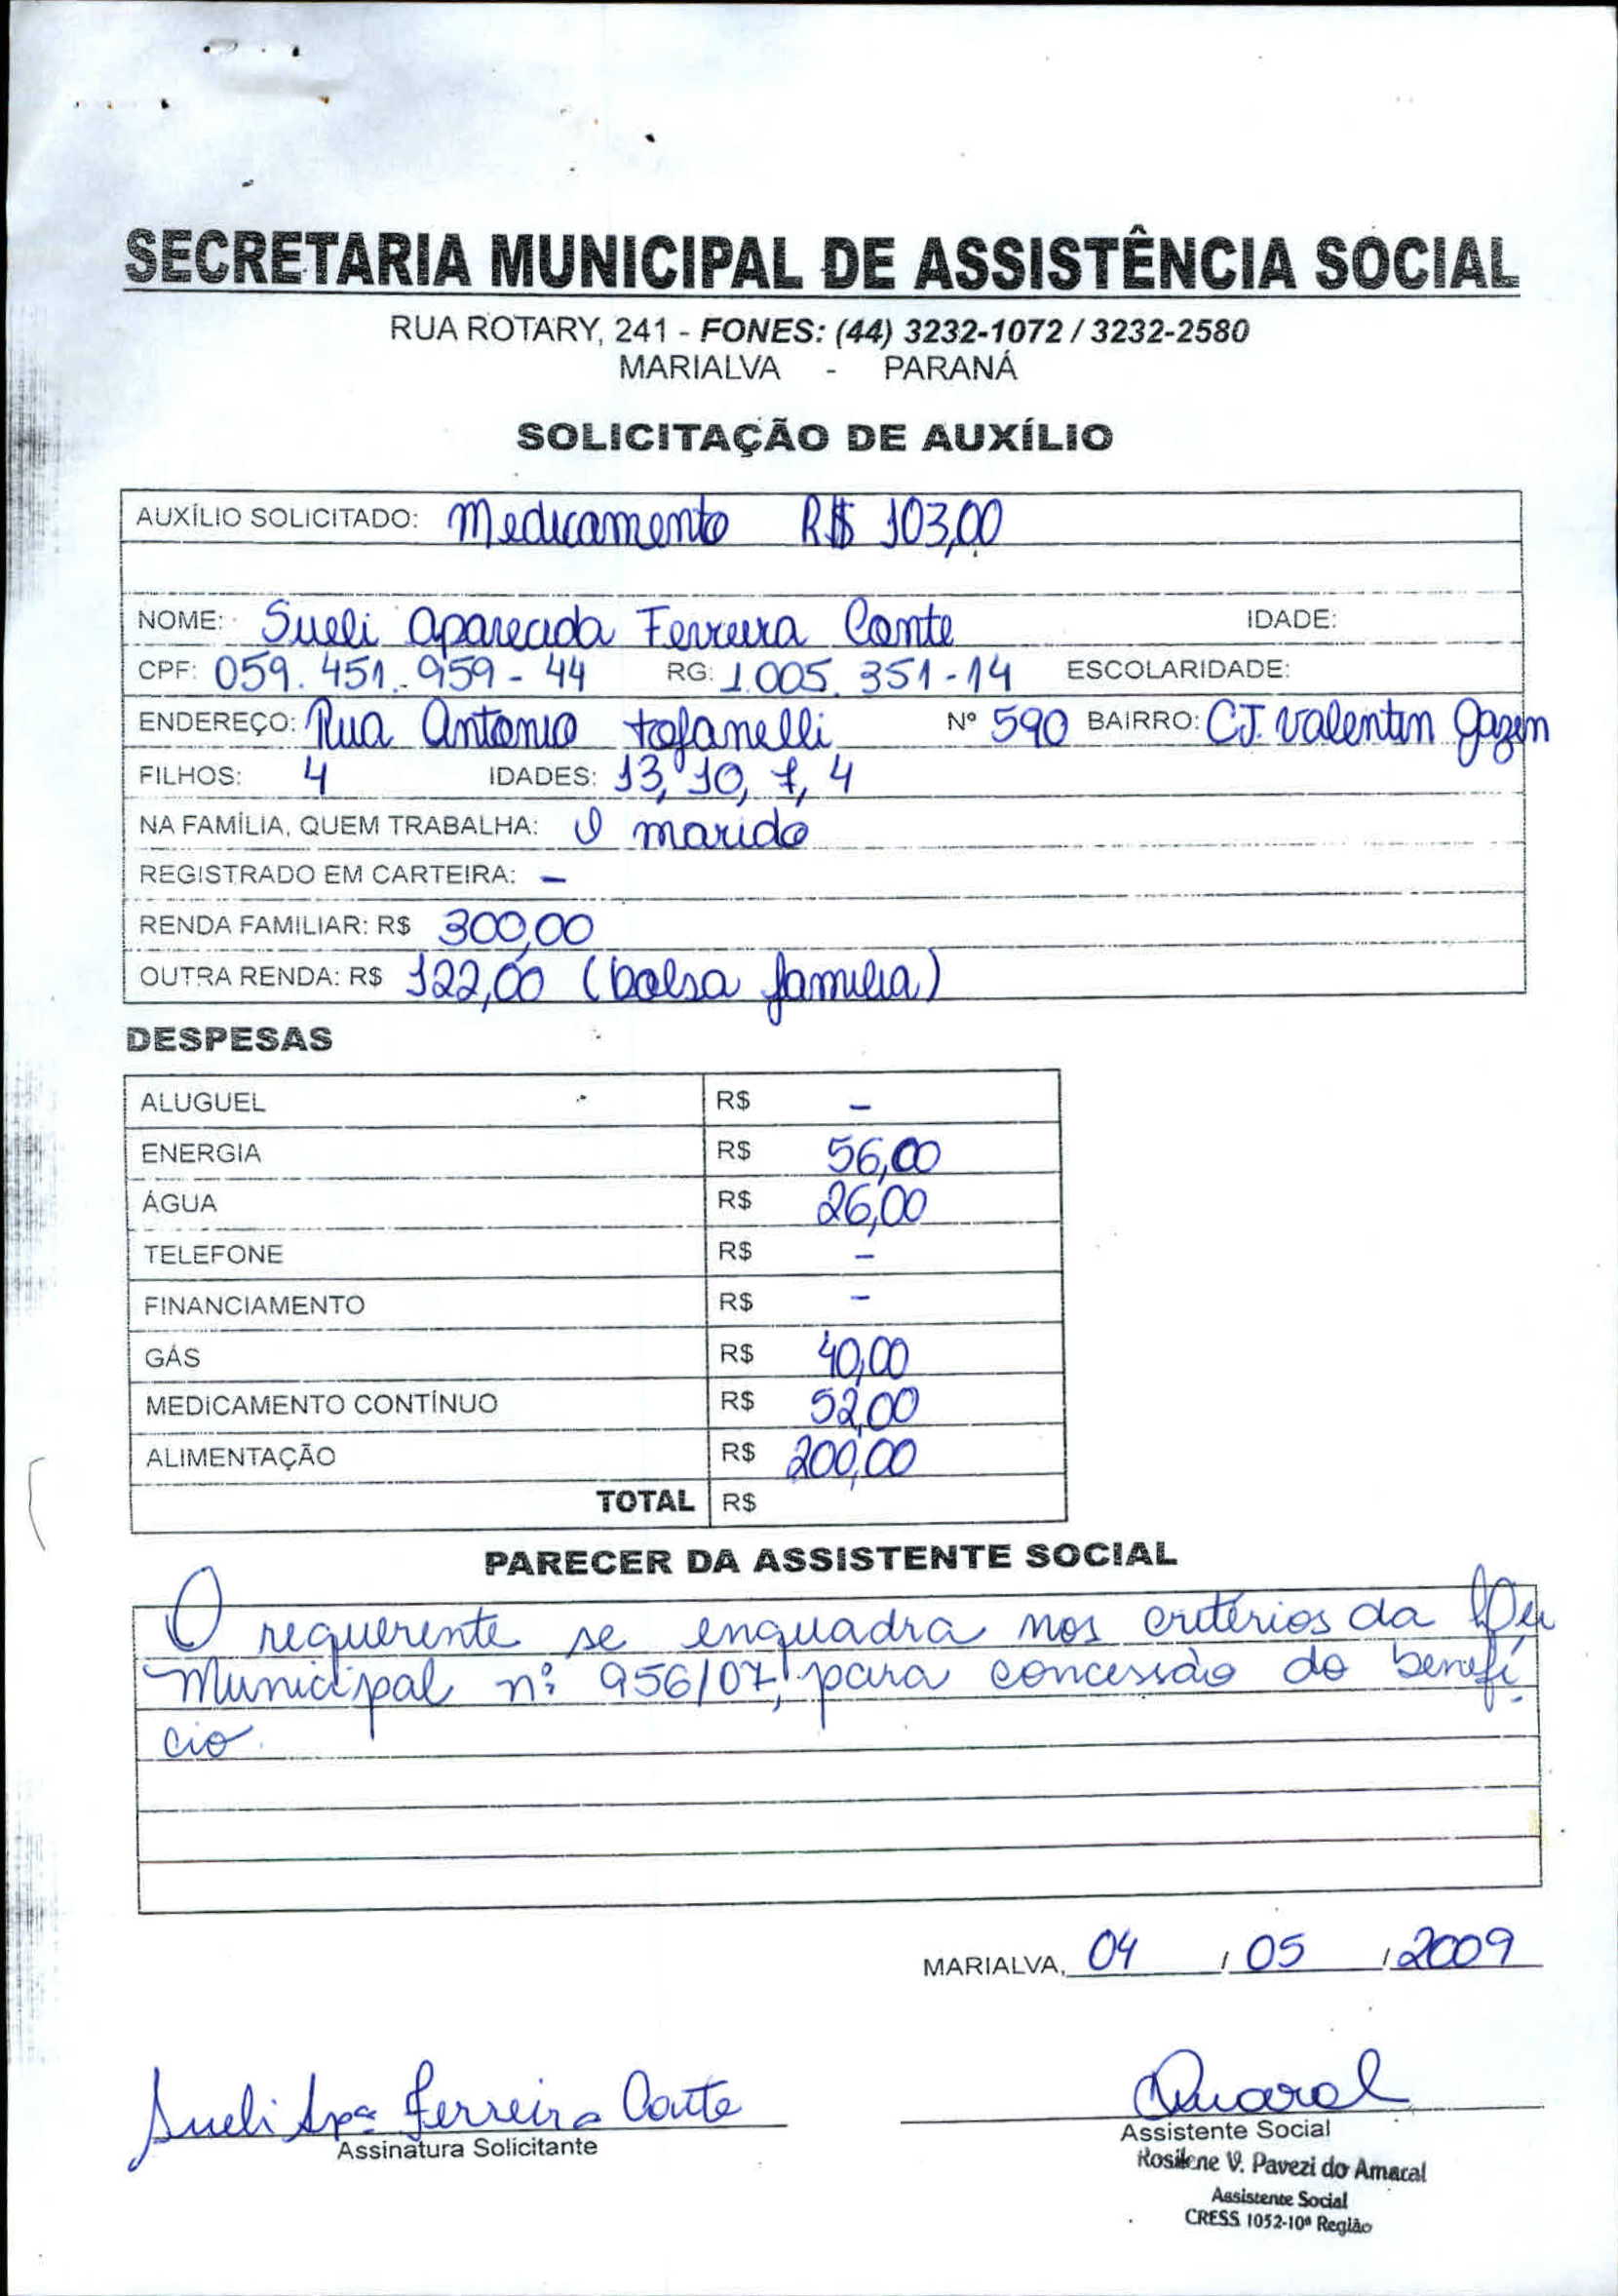 SECRETARIA MUNICIPAL DE ASSISTÊNCIA SOCIAL
RUA ROTARY, 241 - FONES: (44) 3232-1072 / 3232-2580
MARIALVA - PARANÁ
SOLICITAÇÃO DE AUXÍLIO
AUXÍLIO SOLICITADO: Medicamento R$ 103,00
NOME: Sueli Aparecida Ferreira Conte IDADE:
CPF: 059.451.959-44 RG: 1.005.351-14 ESCOLARIDADE:
ENDEREÇO: Rua Antonio tofanelli Nº 590 BAIRRO: CJ. Valentin Gazin
FILHOS: 4 IDADES: 13, 10, 7, 4
NA FAMÍLIA, QUEM TRABALHA: O marido
REGISTRADO EM CARTEIRA: -
RENDA FAMILIAR: R$ 300,00
OUTRA RENDA: R$ 122,00 (bolsa familia)
DESPESAS
ALUGUEL R$ -
ENERGIA R$ 56,00
ÁGUA R$ 26,00
TELEFONE R$ -
FINANCIAMENTO R$ -
GÁS R$ 40,00
MEDICAMENTO CONTÍNUO R$ 52,00
ALIMENTAÇÃO R$ 200,00
TOTAL R$
PARECER DA ASSISTENTE SOCIAL
O requerente se enquadra nos critérios da Lei
Municipal nº 956/07, para concessão do benefí
cio.
MARIALVA, 04 / 05 / 2009
Sueli Apª Ferreira Conte
Assinatura Solicitante
Amaral
Assistente Social
Rosilene V. Pavezi do Amaral
Assistente Social
CRESS 1052-10ª Região